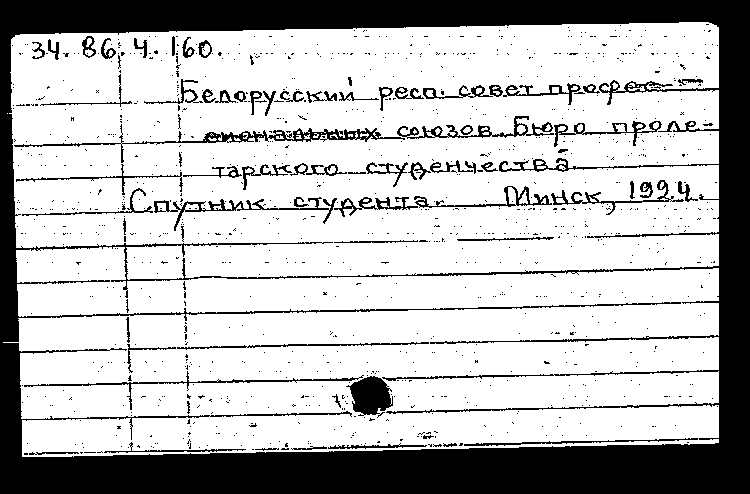 34. 86. 4. 160.
Белорусский респ. совет профес-
сиональных союзов. Бюро проле-
тарского студенчества.
Спутник студента. Минск, 1924.